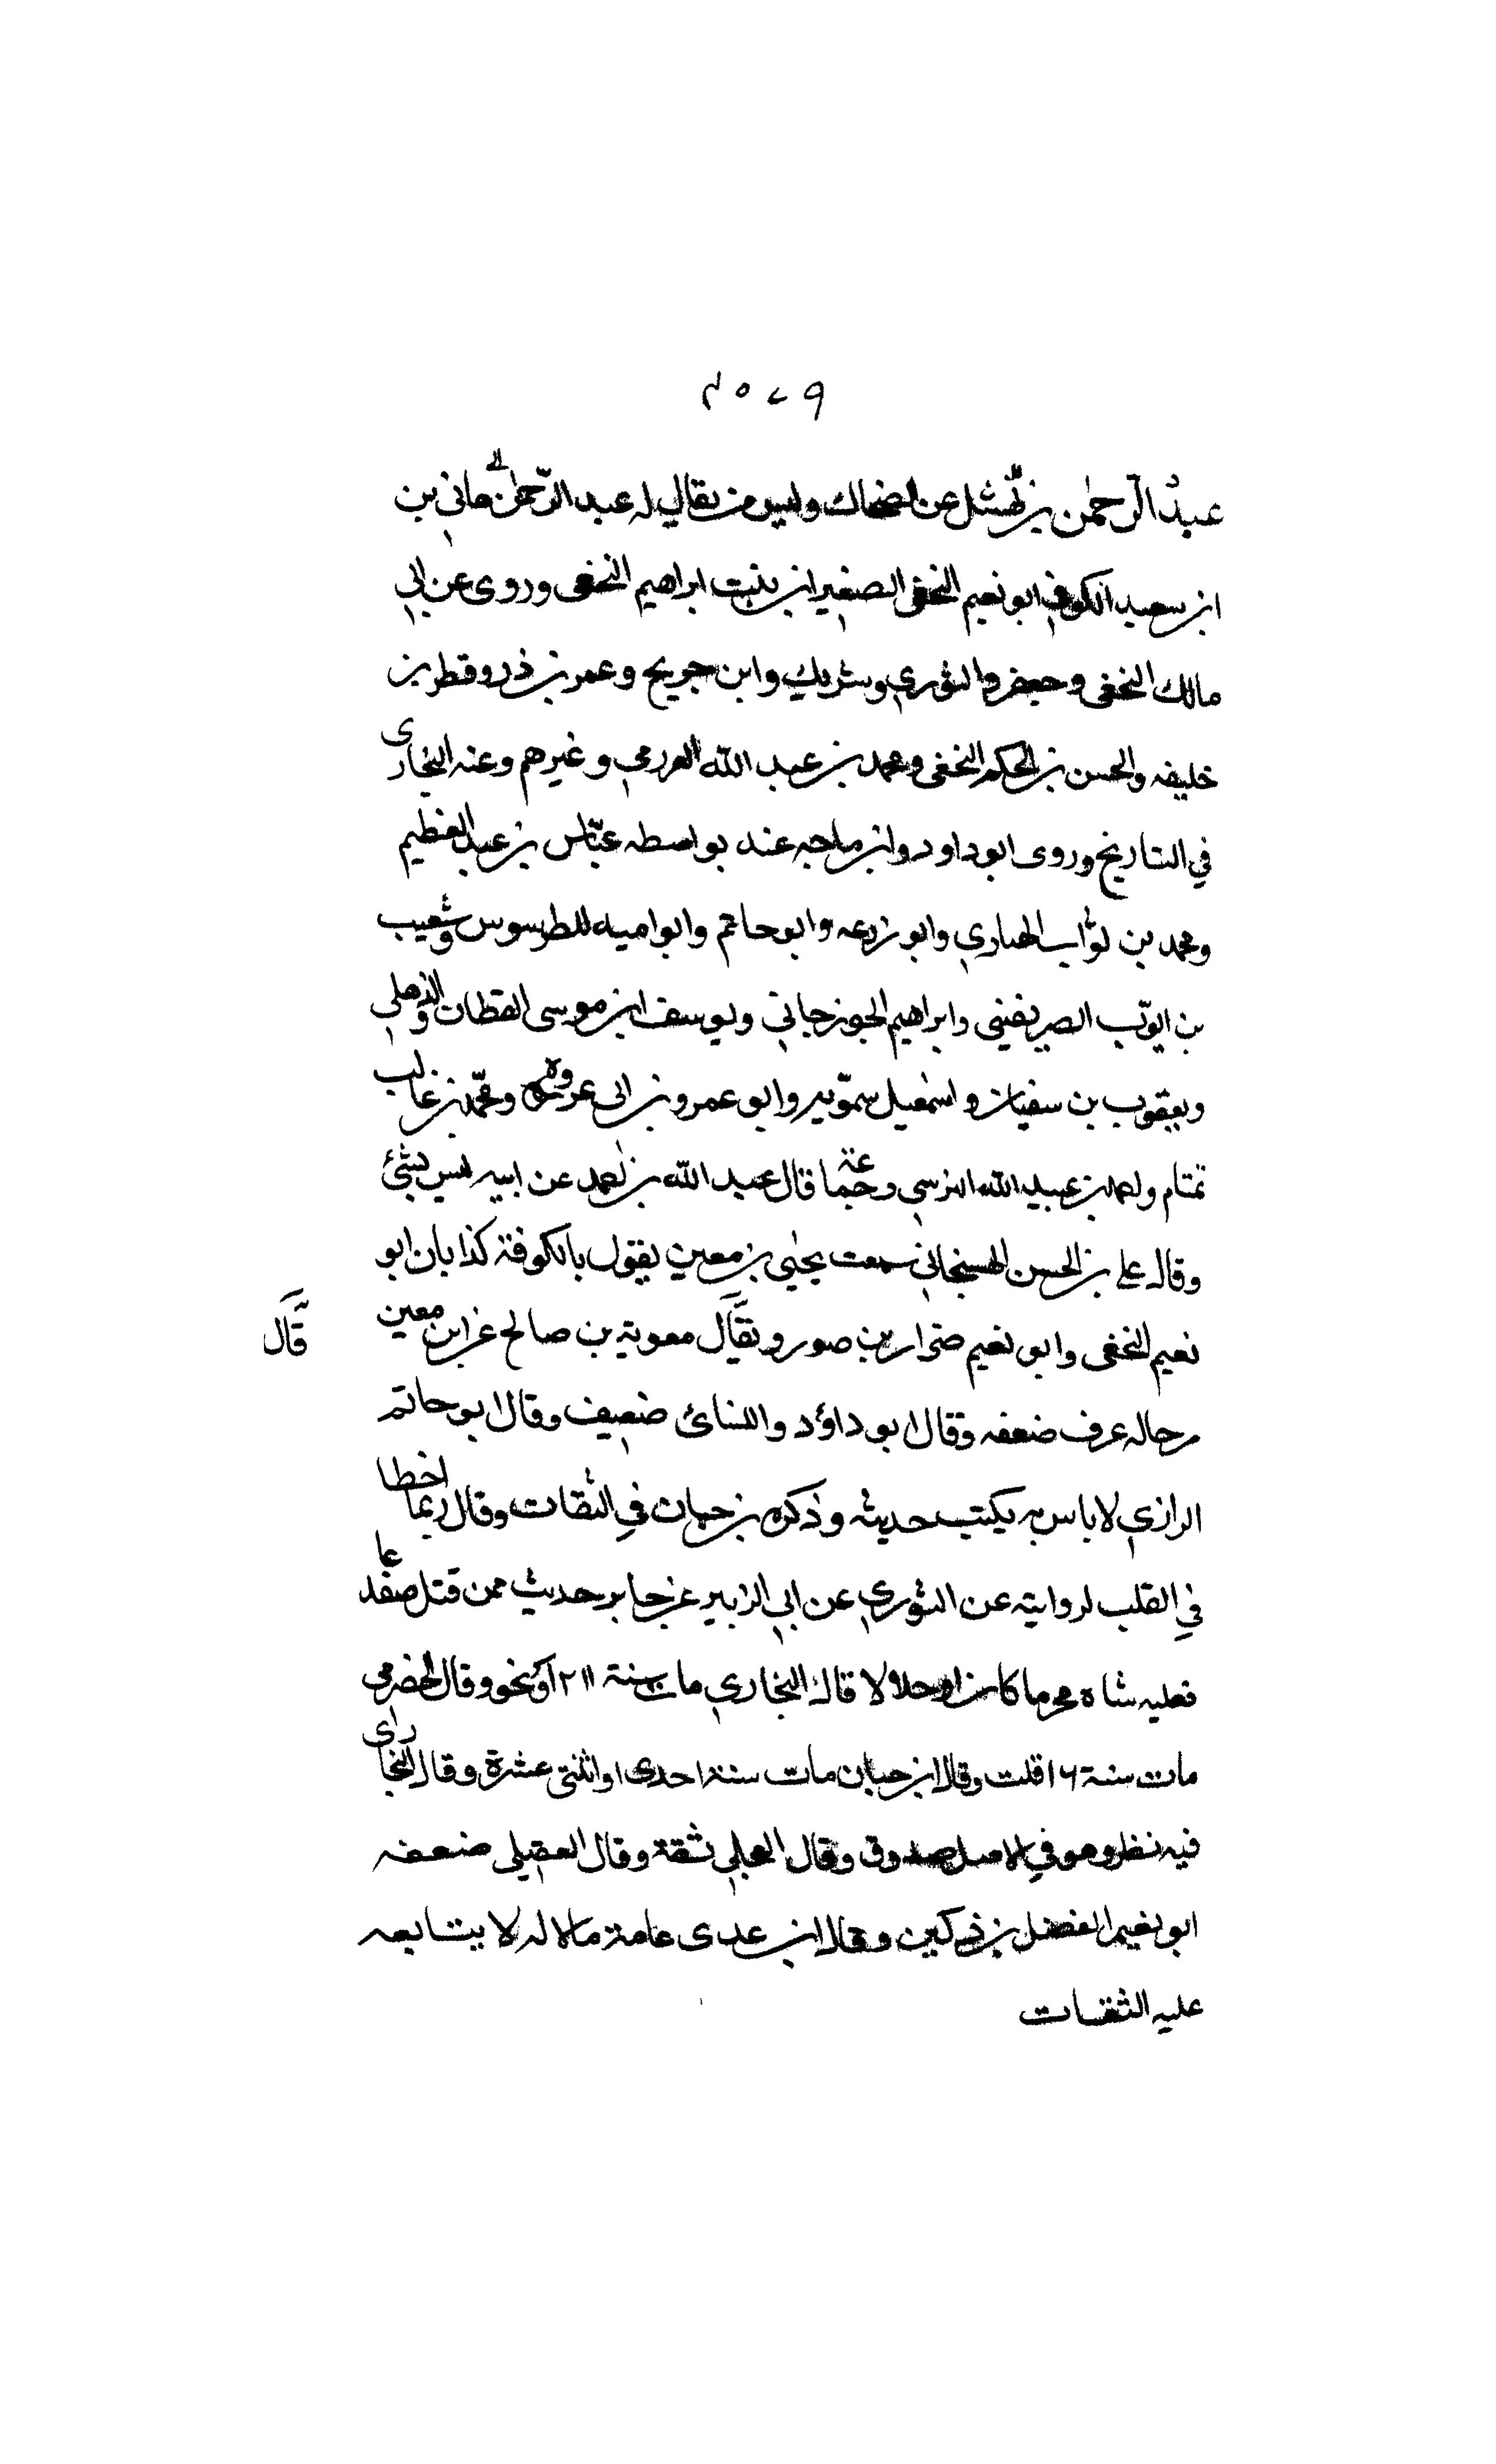 ٢٥٧٩
عبد الرحمن بن نهشل عن الضحاك وليس من يقال له عبد الرحمن هاني بن
ابن سعيد الكوفي ابو نعيم النخعي الصغير ابن بنت ابراهيم النخعي وروى عن ابي
مالك النخعي و والثوري وشريك وابن جريج وعمر بن ذر وقطر بن
خليفه والحسن بن الحكم النخعي ومحمد بن عبد الله العرزمي وغيرهم وعنه البخاري
في التاريخ وروى ابو داود وابن ماجه عنه بواسطه عباس بن عبد العظيم
ومحمد بن ثواب الهباري وابو زرعه وابو حاتم وابو اميه الطرسوس وشعيب
بن ايوب الصريفيني وابراهيم الجوزجاني ويوسف ابن موسى القطان والذهلي
ويعقوب بن سفيان واسمعيل سمويه وابو عمرو بن ابي عروة ومحمد بن غالب
تمتام واحمد بن عبيد الله النرسي وجماعة قال عبد الله بن احمد عن ابيه ليس بشئ
وقال علي بن الحسن الهسنجاني سمعت يحيى بن معين يقول بالكوفة كذابان ابو
نعيم النخعي وابو نعيم ضرار بن صور ويقال معوية بن صالح عن ابن معين
قال
رجاله عرف ضعفه وقال ابو داؤد والنسائ ضعيف وقال ابو حاتم
الرازي لا باس به يكتب حديثه وذكره بن حبان في الثقات وقال ربما اخطا
في القلب لروايته عن الثوري عن ابي الزبير عن جابر حديث ممن قتل ضفدعا
فعليه شاه محرما كان او حلالا قال البخاري مات سنة ٢١١ او نحو وقال الحضرمي
مات سنة ١٦ قلت وقال ابن حبان مات سنة احدى او اثنتي عشرة وقال البخاري
فيه نظر وهو في الاصل صدوق وقال العجلي ثقة وقال العقيلي ضعفه
ابو نعيم الفضل بن ذكين وقال ابن عدي عامة ماله لا يتابعه
عليه الثقات